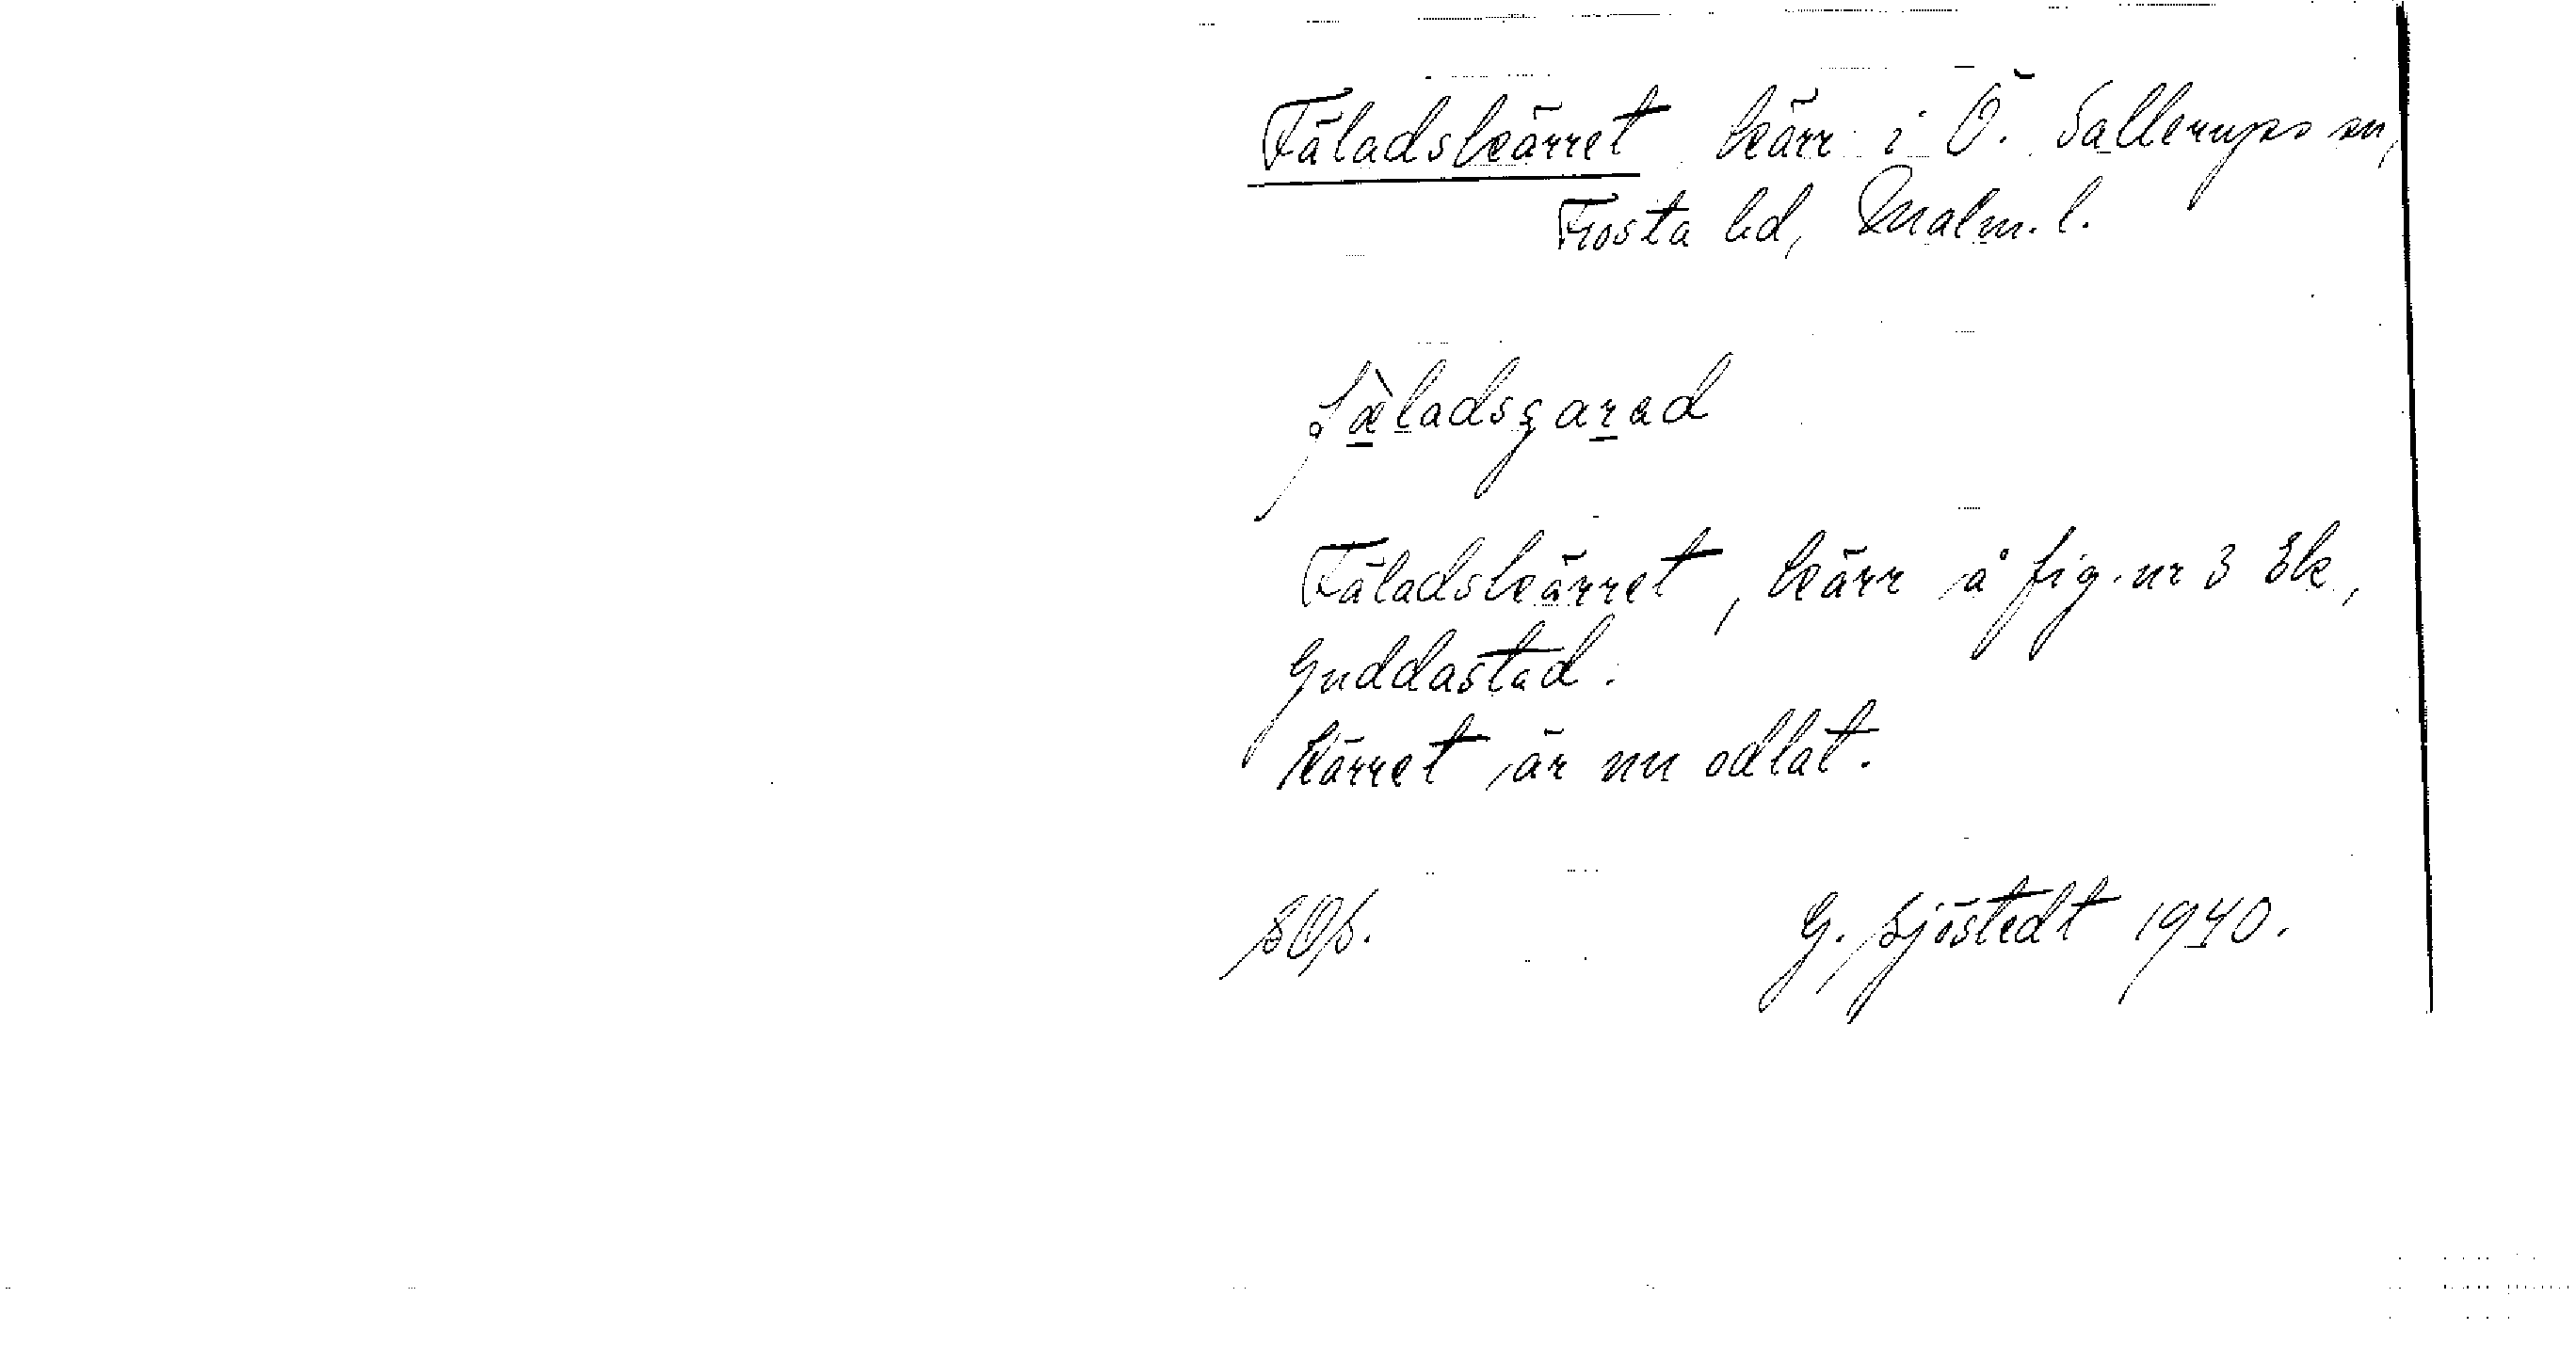 Fäladskärret kärr i Ö. Sallerups sn,
Frosta hd, Malm. l.
Fäladskärret, kärr å fig. nr 3 Ek,
Guddastad.
Kärret är nu odlat.
SOS. G. Sjöstedt 1940.